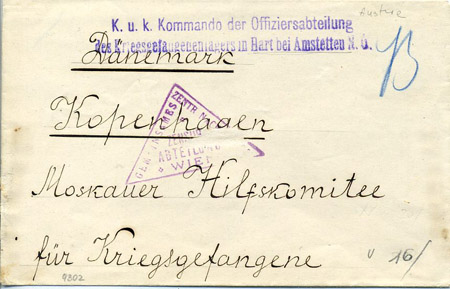 Austria
K. u. k. Kommando der Offiziersabteilung
des Kriegsgefangenenlagers in Hart bei Amstetten N. Ö.
Dänemark
Kopenhagen
ZENSUR
ABTEILUNG
WIEN
Moskauer Hilfskomitee
für Kriegsgefangene
16/
9802